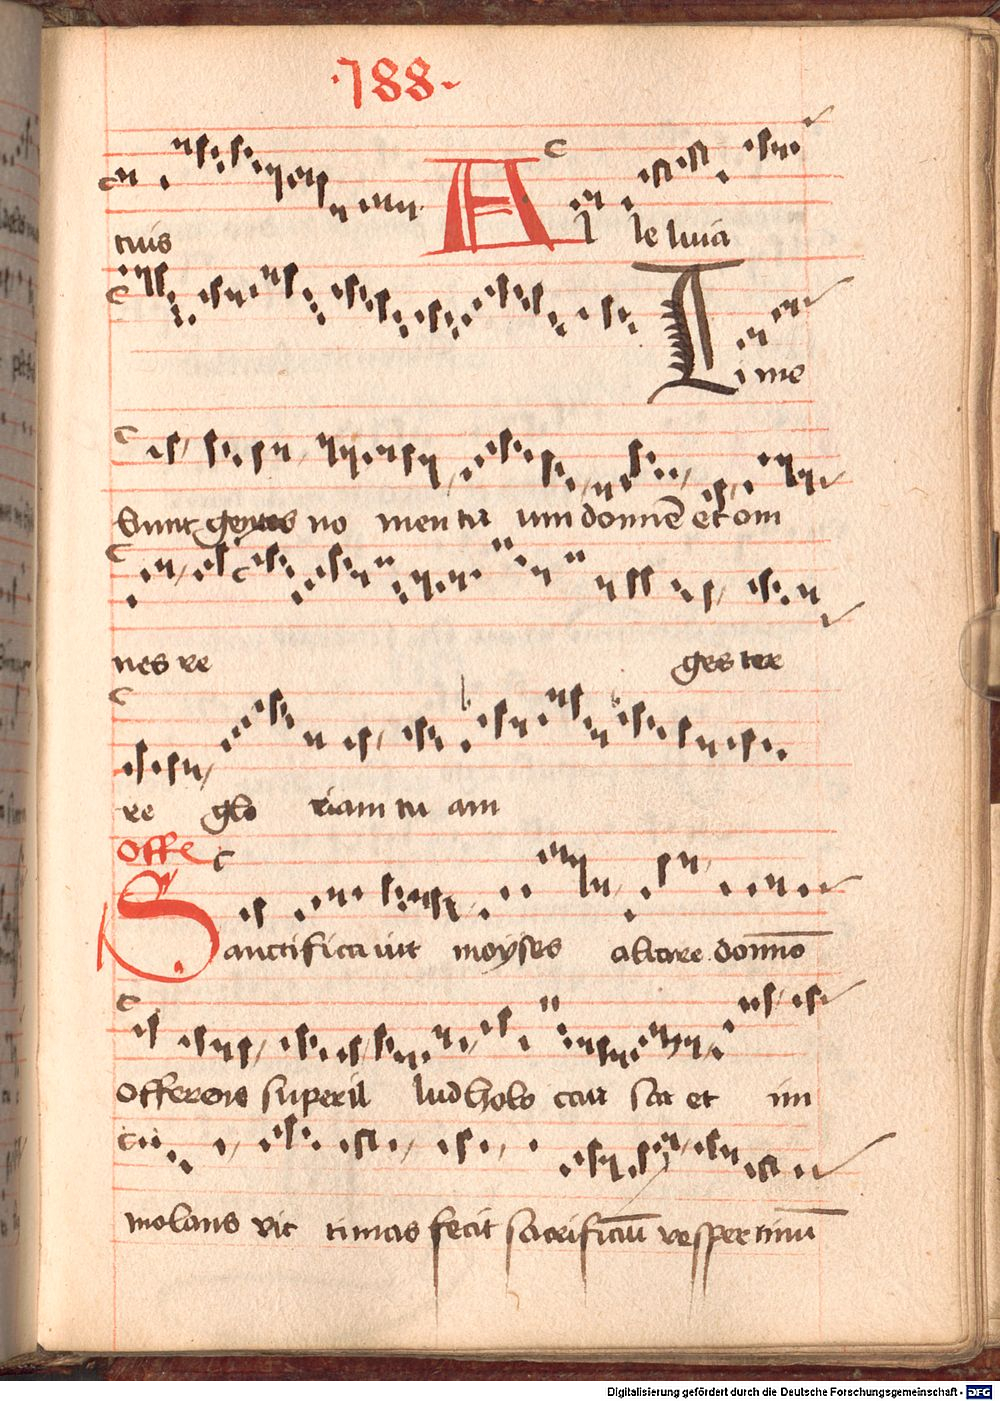 ·188·
tuis Al le luia
Ti me
bunt gentes no men tu um domine et om
nes re ges ter
re glo riam tu am
Offe
Sanctifica uit moyses altare domino
offerens super il lud holo cau sta et im
molans vic timas fecit sacrificiū vespertinū
Digitalisierung gefördert durch die Deutsche Forschungsgemeinschaft - DFG